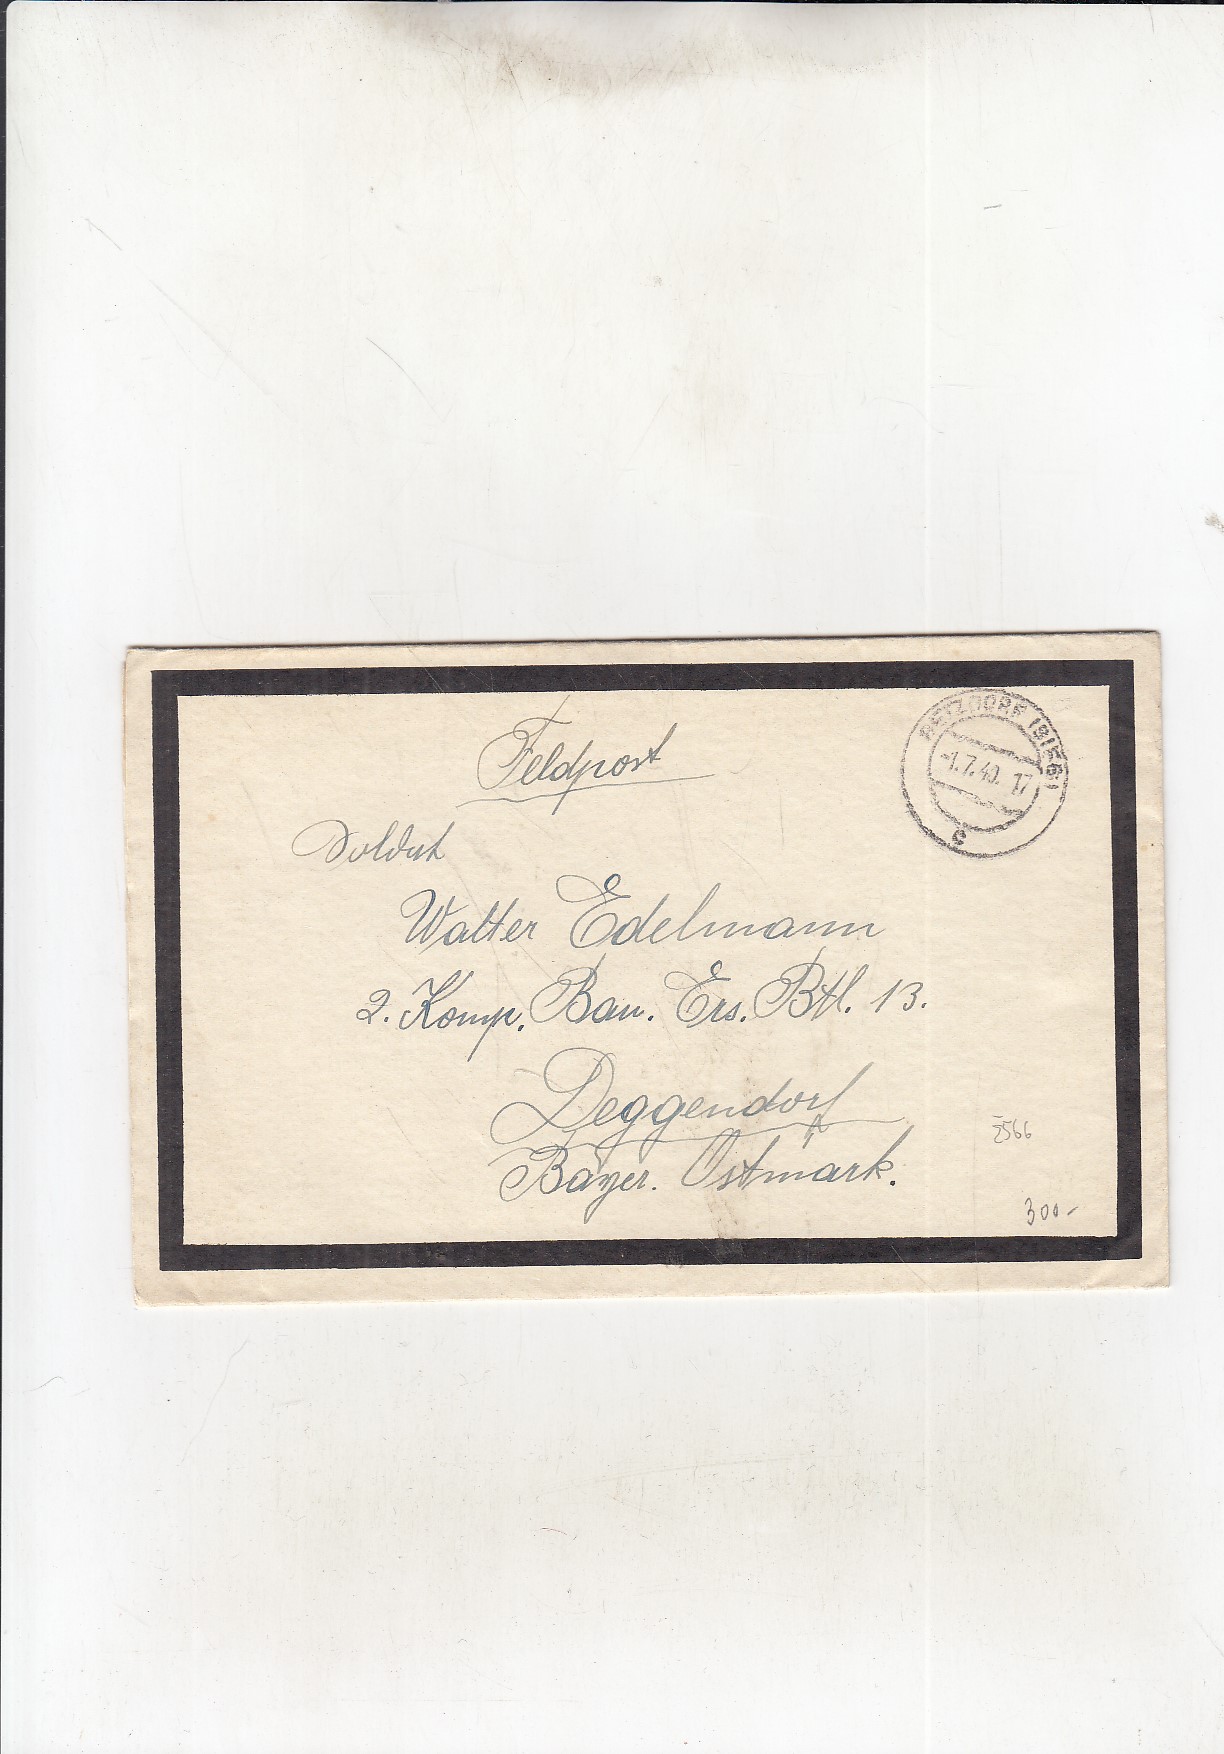 Feldpost
BETZDORF (SIEG)
-1.7.40. 17
Soldat
Walter Edelmann
2. Komp. Bau. Ers. Btl. 13.
Deggendorf
Bayer. Ostmark.
2566
300.-